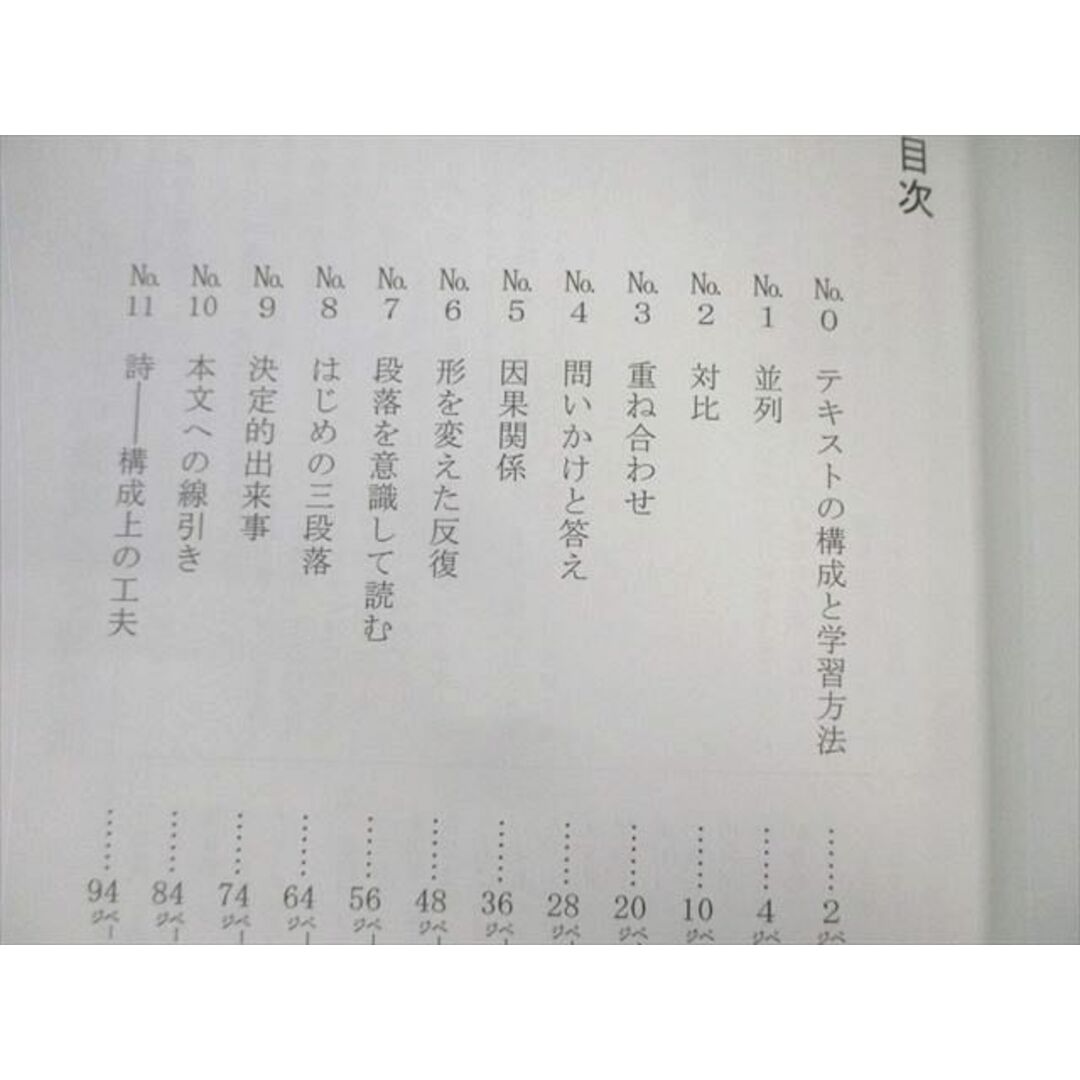 目次
No.0 テキストの構成と学習方法 ……2ページ
No.1 並列 ……4ページ
No.2 対比 ……10ページ
No.3 重ね合わせ ……20ページ
No.4 問いかけと答え ……28ページ
No.5 因果関係 ……36ページ
No.6 形を変えた反復 ……48ページ
No.7 段落を意識して読む ……56ページ
No.8 はじめの三段落 ……64ページ
No.9 決定的出来事 ……74ページ
No.10 本文への線引き ……84ページ
No.11 詩――構成上の工夫 ……94ページ